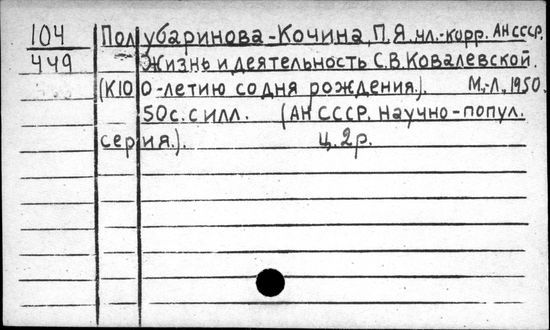 104 Полубаринова-Кочина, П.Я. чл.-корр. АН СССР.
449 Жизнь и деятельность С.В. Ковалевской.
(К 100-летию со дня рождения.). М.-Л., 1950.
50 с. с илл. (АН СССР. Научно-попул.
серия.). Ц. 2 р.